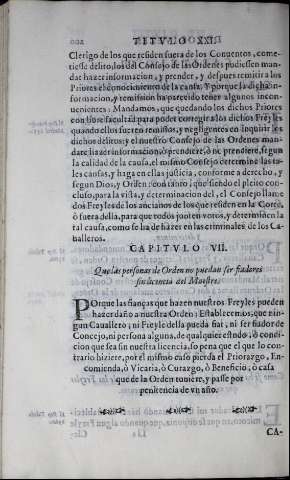 TITVLO XXI.
Clerigo de los que residen fuera de los Conuentos, come-
tiesse delito, los del Consejo de las Ordenes pudiessen man-
dar hazer informacion, y prender, y despues remitir a los
Priores el conocimiento de la causa. Y porque la dicha in-
formacion, y remission ha parecido tener algunos incon-
uenientes: Mandamos, que quedando los dichos Priores
con libre facultad para poder corregir a los dichos Freyles
quando ellos fueren remissos, y negligentes en inquirir los
dichos delitos; y el nuestro Consejo de las Ordenes man-
dare hazer informacion, ò prendiere, ò no prendiere, segun
la calidad de la causa, el mismo Consejo determine las ta-
les causas, y haga en ellas justicia, conforme a derecho, y
segun Dios, y Orden: con tanto, que siendo el pleito con-
cluso, para la vista, y determinacion del, el Consejo llame
dos Freyles de los ancianos de los que residen en la Corte,
ò fuera della, para que todos con votos, y determinen la
tal causa, como se ha de hazer en las criminales de los Ca-
balleros.
CAPITVLO VII.
Que las personas de Orden no puedan ser fiadores
sin licencia del Maestre.
POrque las fianças que hazen nuestros Freyles pueden
hazer daño a nuestra Orden: Establecemos, que nin-
gun Cauallero, ni Freyle della pueda fiar, ni ser fiador de
Concejo, ni persona alguna, de qualquier estado, ò condi-
cion que sea sin nuestra licencia, so pena que el que lo con-
trario hiziere, por el mismo caso pierda el Priorazgo, En-
comienda, ò Vicaria, ò Curazgo, ò Beneficio, ò casa
que de la Orden tuuiere, y passe por
penitencia de vn año.
CA-